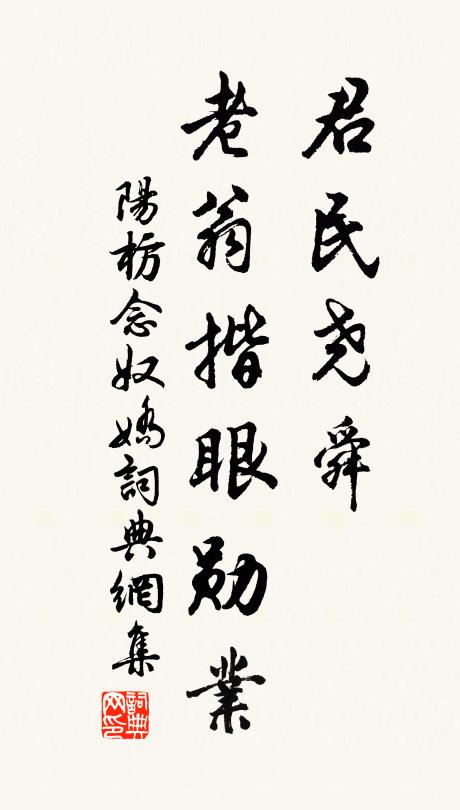 君民尧舜
老翁揩眼勋業
陽枋念奴嬌詞典網集
詞典网印